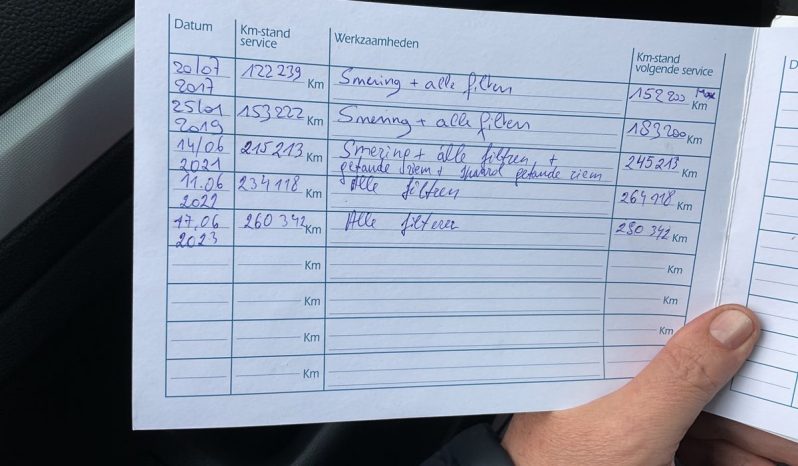 Datum Km-stand service Werkzaamheden Km-stand volgende service
20/07 2017 122 239 Km Smering + alle filters 152 200 Max Km
25/01 2019 153 222 Km Smering + alle filters 183 200 Km
14/06 2021 215 213 Km Smering + alle filtren + 245 213
getande riem + getande riem
11.06 2022 234 118 Km Alle filteren 264 118 Km
17.06 2023 260 342 Km Alle filteren 290 342 Km
Km Km
Km Km
Km Km
Km
D